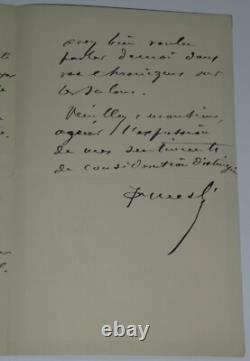 avez bien voulu
parler de moi dans
vos chroniques sur
les salons.
Veuillez, monsieur,
agréer l'expression
de mes sentiments
de considération distinguée